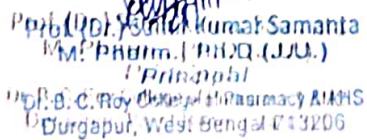 Prof. (Dr.) Kumar Samanta
M. Pharm. PH.D. (J.U.)
Principal
Dr. B. C. Roy College of Pharmacy AHS
Durgapur, West Bengal 713206